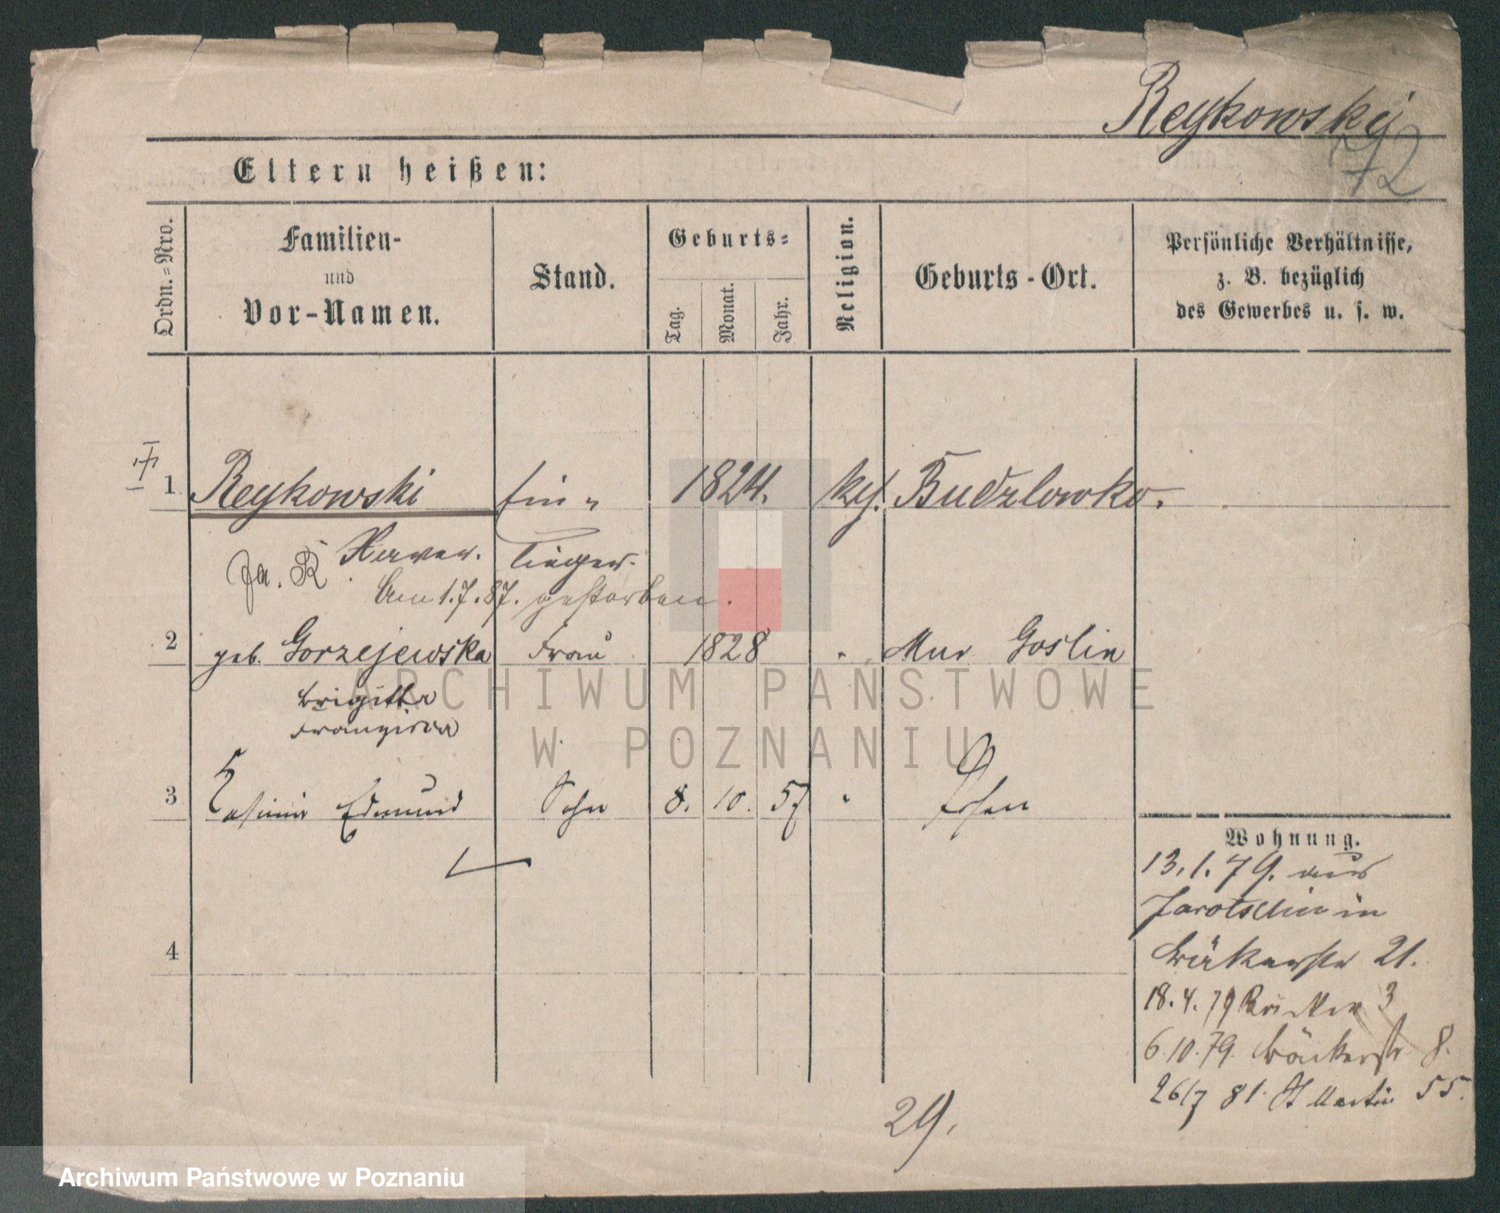 Reykowski
72
Eltern heißen:
Ordn.=Nro.
Familien-
und
Vor-Namen.
Stand.
Geburts=
Tag.
Monat.
Jahr.
Religion.
Geburts-Ort.
Persönliche Verhältnisse,
z. B. bezüglich
des Gewerbes u. s. w.
1 Reykowski Ein- 1824. kath. Budzlowko.
Xaver. lieger.
Am 1.7.87. gestorben.
2 geb. Gorzejewska Frau 1828 " Mur Goslin
Brigitta
Franziska
3 Casimir Edmund Sohn 8. 10. 57 " Posen
4
Wohnung.
13.1.79. aus
Jarotschin in
Bäckerstr 21.
18.4.79 3
6.10.79. Bäckerstr 8.
26/7 81. St Martin 55.
29.
ARCHIWUM PAŃSTWOWE
W POZNANIU
Archiwum Państwowe w Poznaniu